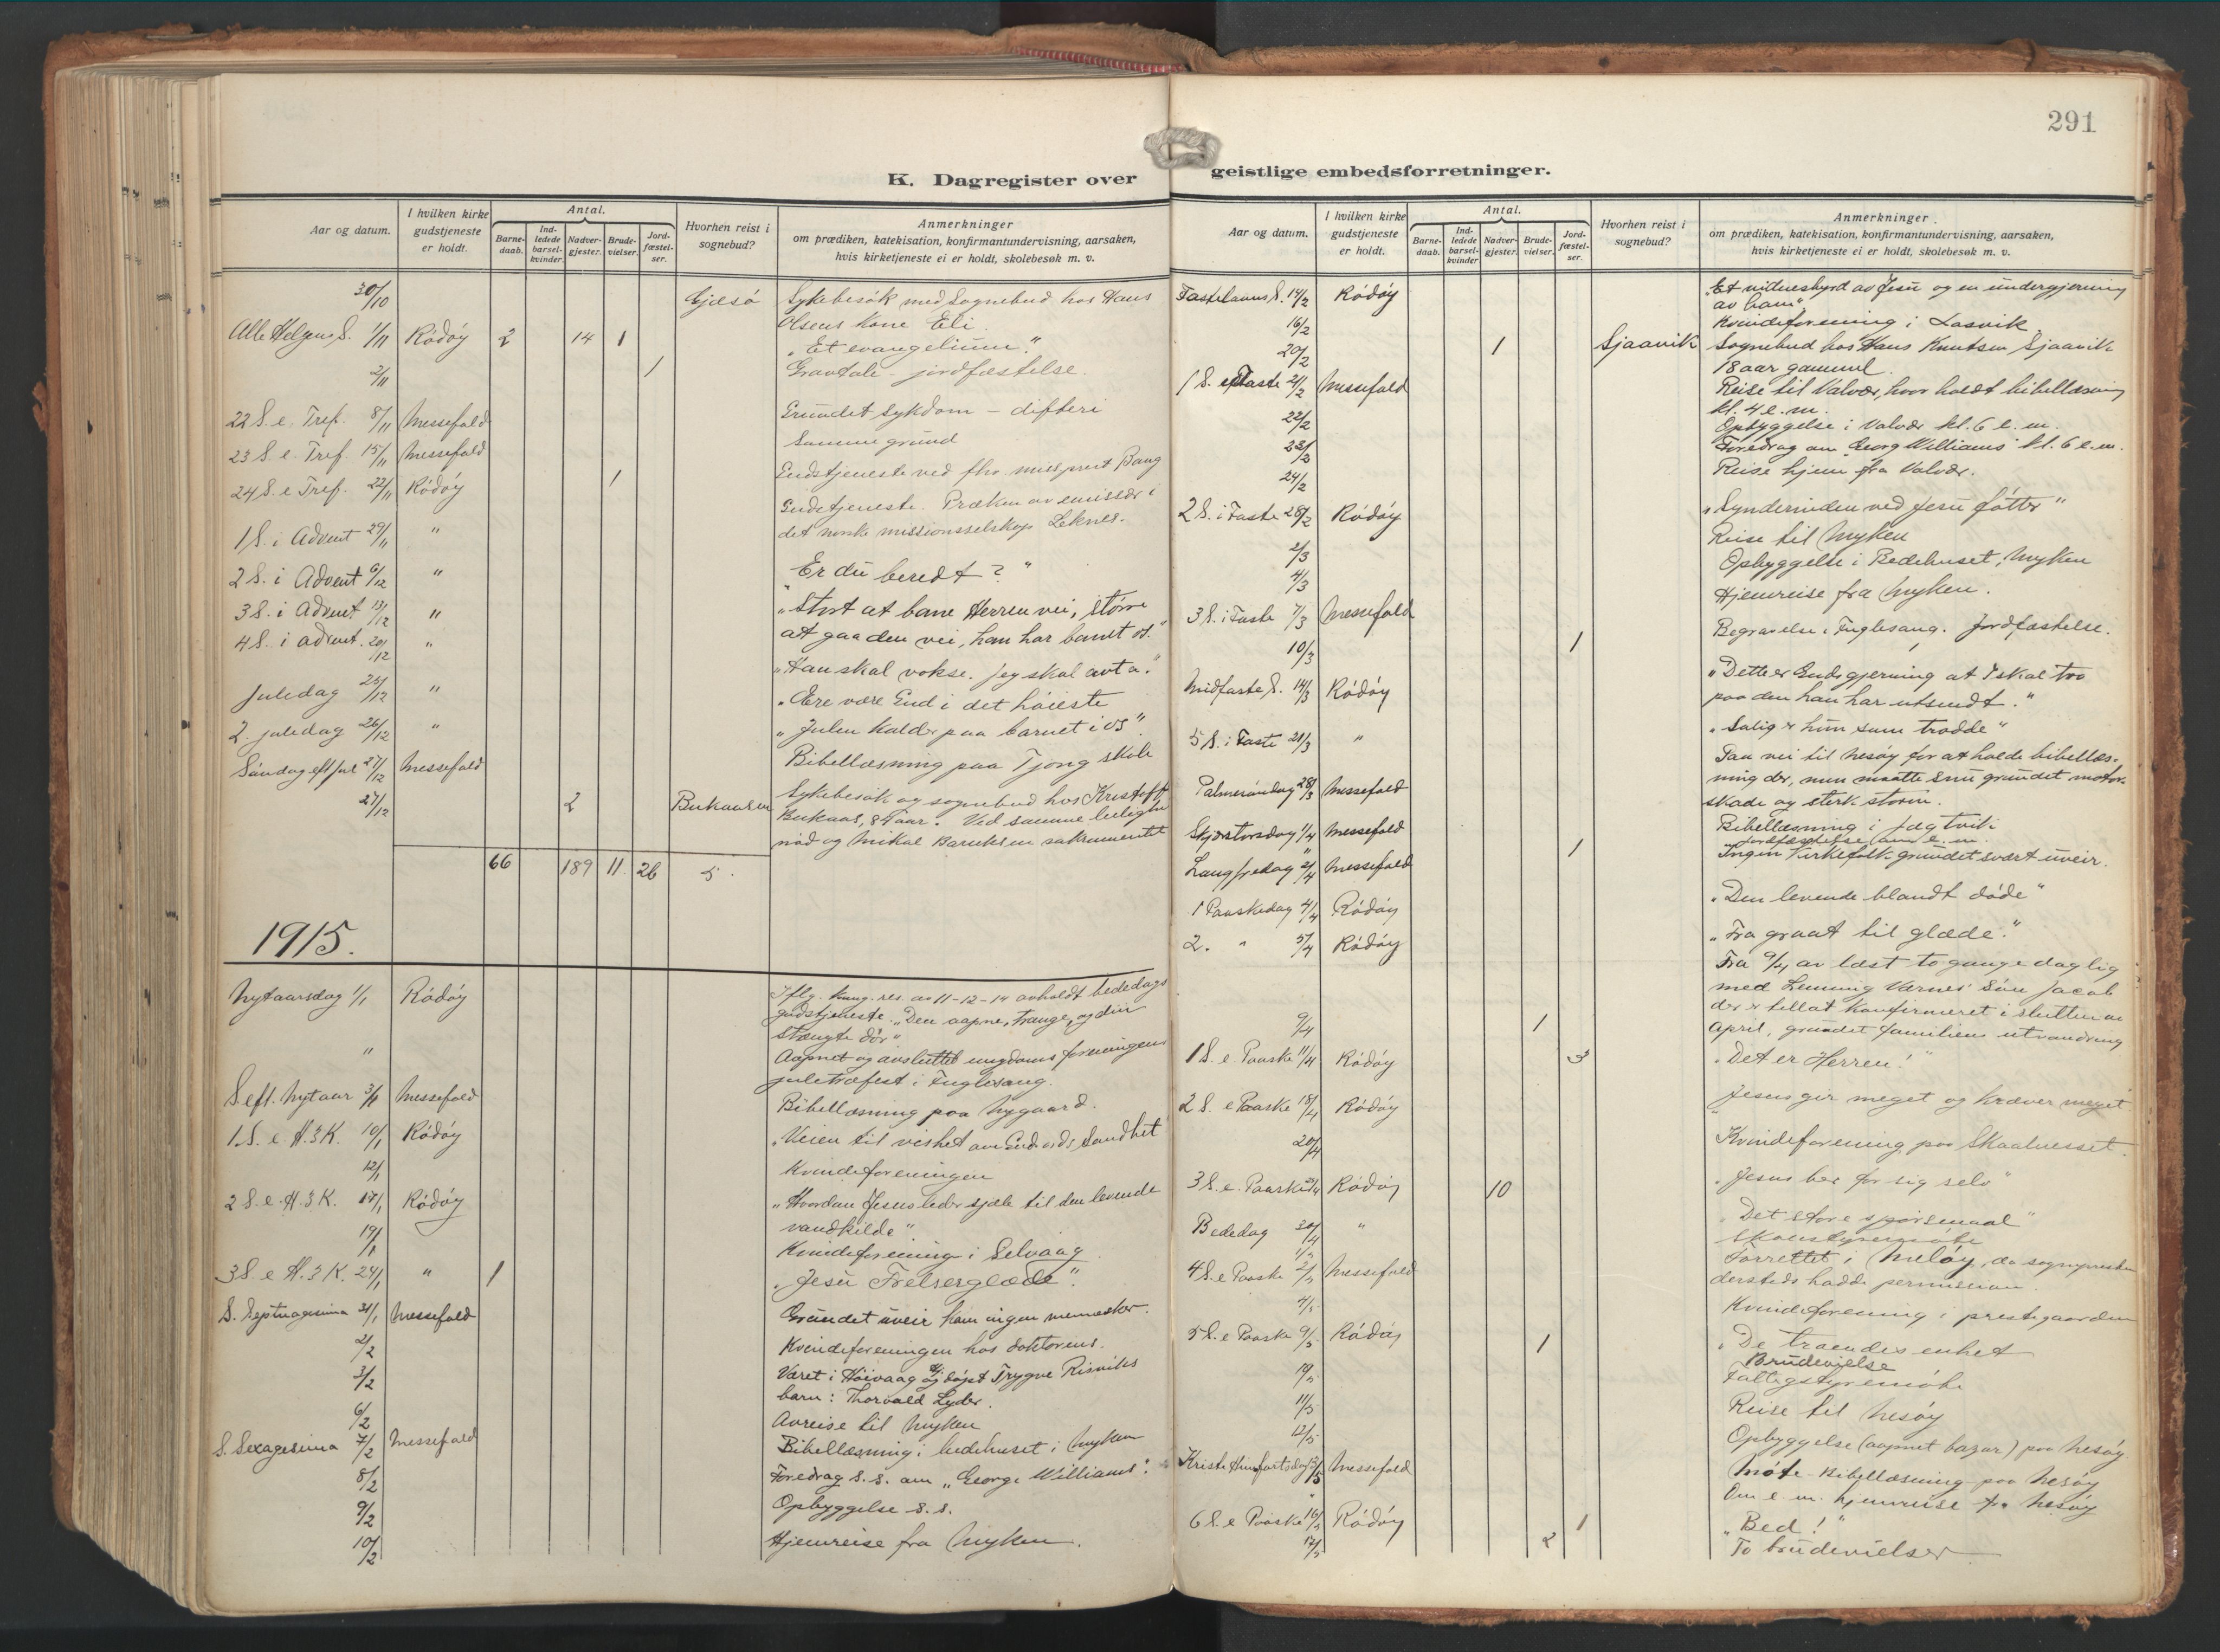 291
K. Dagregister over
Aar og datum.
I hvilken kirke gudstjeneste er holdt.
Antal.
Barnedaab.
Indledede barselkvinder.
Nadvergjester.
Brudevielser.
Jordfæstelser.
Hvorhen reist i sognebud?
Anmerkninger
om prædiken, katekisation, konfirmantundervisning, aarsaken,
hvis kirketjeneste ei er holdt, skolebesøk m. v.
30/10 Gjesö Sykebesök med Sognebud hos Hans
Olsens Kone Eli.
Alle Helgens S. 1/11 Rödöy 2 14 1 "Et evangelium."
2/11 1 Gravtale - jordfæstelse.
22 S. e. Tref. 8/11 Messefold Grundet sykdom – difteri
23 S. e. Tref. 15/11 Messefold Samme grund
24 S. e Tref. 22/11 Rödöy 1 Gudstjeneste ved fhv. Bang
1 S. i Advent 29/11 " Gudstjeneste. Præken av emissær i
det norske missionsselskap Leknes.
2 S. i Advent 6/12 " "Er du beredt?"
3 S. i Advent 13/12 " "Stort at bane Herren vei, större
at gaa den vei, han har banet os."
4 S. i advent. 20/12 " "Han skal vokse. Jeg skal avta."
Juledag 25/12 " "Ære være Gud i det höieste
2. juledag 26/12 " "Julen kalder paa barnet i os".
Söndag eft jul 27/12 Messefold Bibellæsning paa Tjong skole
27/12 2 Sykebesök og sognebud hos Kristoff.
Bukaas, 84 aar. Ved samme leilighet
nöd og Mikal Baruksen sakramentet
66 189 11 26 5.
1915.
Nytaarsdag 1/1 Rödöy Iflg. kong. res. av 11-12-14 avholdt bededags
gudstjeneste. "Den aapne, trange, og den
stængte dör"
" Aapnet og avsluttet ungdomsforeningens
juletræfest i Fuglesang.
S. eft. Nytaar 3/1 Messefold Bibellæsning paa Nygaard.
1. S. e. H. 3 K. 10/1 Rödöy "Veien til vished om Guds ords Sandhet
12/1 Kvindeforeningen
2 S. e. H. 3 K. 17/1 Rödöy "Hvordan Jesus leder sjæle til den levende
vandkilde".
19/1 Kvindeforening i Selvaag
3 S. e H. 3 K. 24/1 " 1 "Jesu Frelserglæde".
S. Septuagesima 31/1 Messefold Grundet uveir kom ingen mennesker.
2/2 Kvindeforeningen hos doktorens.
3/2 Været i Höivaag og döpt Trygve Risviks
barn: Thorvald Lyder.
6/2 Avreise til Myken
S. Sexagesima 7/2 Messefold Bibellæsning i bedehuset i Myken
8/2 Foredrag s. s. om "George Williams".
9/2 Opbyggelse s. s.
10/2 Hjemreise fra Myken.
geistlige embedsforretninger.
Aar og datum.
I hvilken kirke gudstjeneste er holdt.
Antal.
Barnedaab.
Indledede barselkvinder
Nadvergjester.
Brudevielser.
Jordfæstelser.
Hvorhen reist i sognebud?
Anmerkninger
om prædiken, katekisation, konfirmantundervisning, aarsaken,
hvis kirketjeneste ei er holdt, skolebesøk m. v.
Fastelavns S. 14/2 Rödöy "Et vidnesbyrd av Jesu og en undergjerning
av ham"
16/2 Kvindeforening i Lasvik.
20/2 1 Sjaavik Sognebud hos Hans Knutsen Sjaavik
18 aar gammel.
1 S. i Faste 21/2 Messefold Reise til Valvær, hvor holdt bibellæsning
kl. 4 e. m.
22/2 Opbyggelse i Valvær kl. 6 e. m.
23/2 Foredrag om Georg Williams kl. 6 e. m.
24/2 Reise hjem fra Valvær.
2 S. i Faste 28/2 Rödöy "Synderinden ved Jesu fötter"
2/3 Reise til Myken
4/3 Opbyggelse i Bedehuset, Myken
Hjemreise fra Myken.
3 S. i Faste 7/3 Messefold
10/3 1 Begravelse i Fuglesang. Jordfæstelse.
Midfaste S. 14/3 Rödöy "Dette er Guds gjerning at I skal tro
paa den han har utsendt."
5 S. i Faste 21/3 " "Salig er hun som trodde"
Palmesöndag 28/3 Messefold Paa vei til Nesöy for at holde bibellæsning
der, men maatte snu grundet motorskade
og sterk storm.
Skjærtorsdag 1/4 Messefold Bibellæsning i Jægtvik
" 1 Jordfæstelse om e. m.
Langfredag 2/4 Messefold Ingen Kirkefolk grundet svært uveir.
1 Paaskedag 4/4 Rödöy "Den levende blandt döde"
2. " 5/4 Rödöy "Fra graat til glæde."
Fra 9/4 av læst to gange daglig
med Lemmig Værnes' Sön Jacob
der er tillat konfirmeret i slutten av
9/4 1 April, grundet familiens utvandring
1 S. e. Paaske 11/4 Rödöy 3 "Det er Herren!"
2 S. e Paaske 18/4 Rödöy "Jesus gir meget og kræver meget"
20/4 Kvindeforening paa Skaalnesset.
3 S. e. Paaske Rödöy 10 "Jesus ber for sig selv"
Bededag 30/4 " "Det store spörsmaal"
Skolestyremöte
4 S. e Paaske 2/5 Messefold Forrettet i Meløy, da sognepresten
dersteds hadde permission.
4/5 Kvindeforening i prestegaarden
5 S. e Paaske 9/5 Rödöy 1 "De troendes enhet
Brudevielse
Fattigstyremöte
11/5 Reise til Nesöy
12/5 Opbyggelse (aapnet bazar) paa Nesöy
Kristi Himmelfartsdag 13/5 Messefold Möte - Bibellæsning paa Nesöy
" Om e. m. hjemreise fra Nesöy
6 S. e Paaske 16/5 Rödöy 1 "Bed!"
17/5 2 To brudevielser